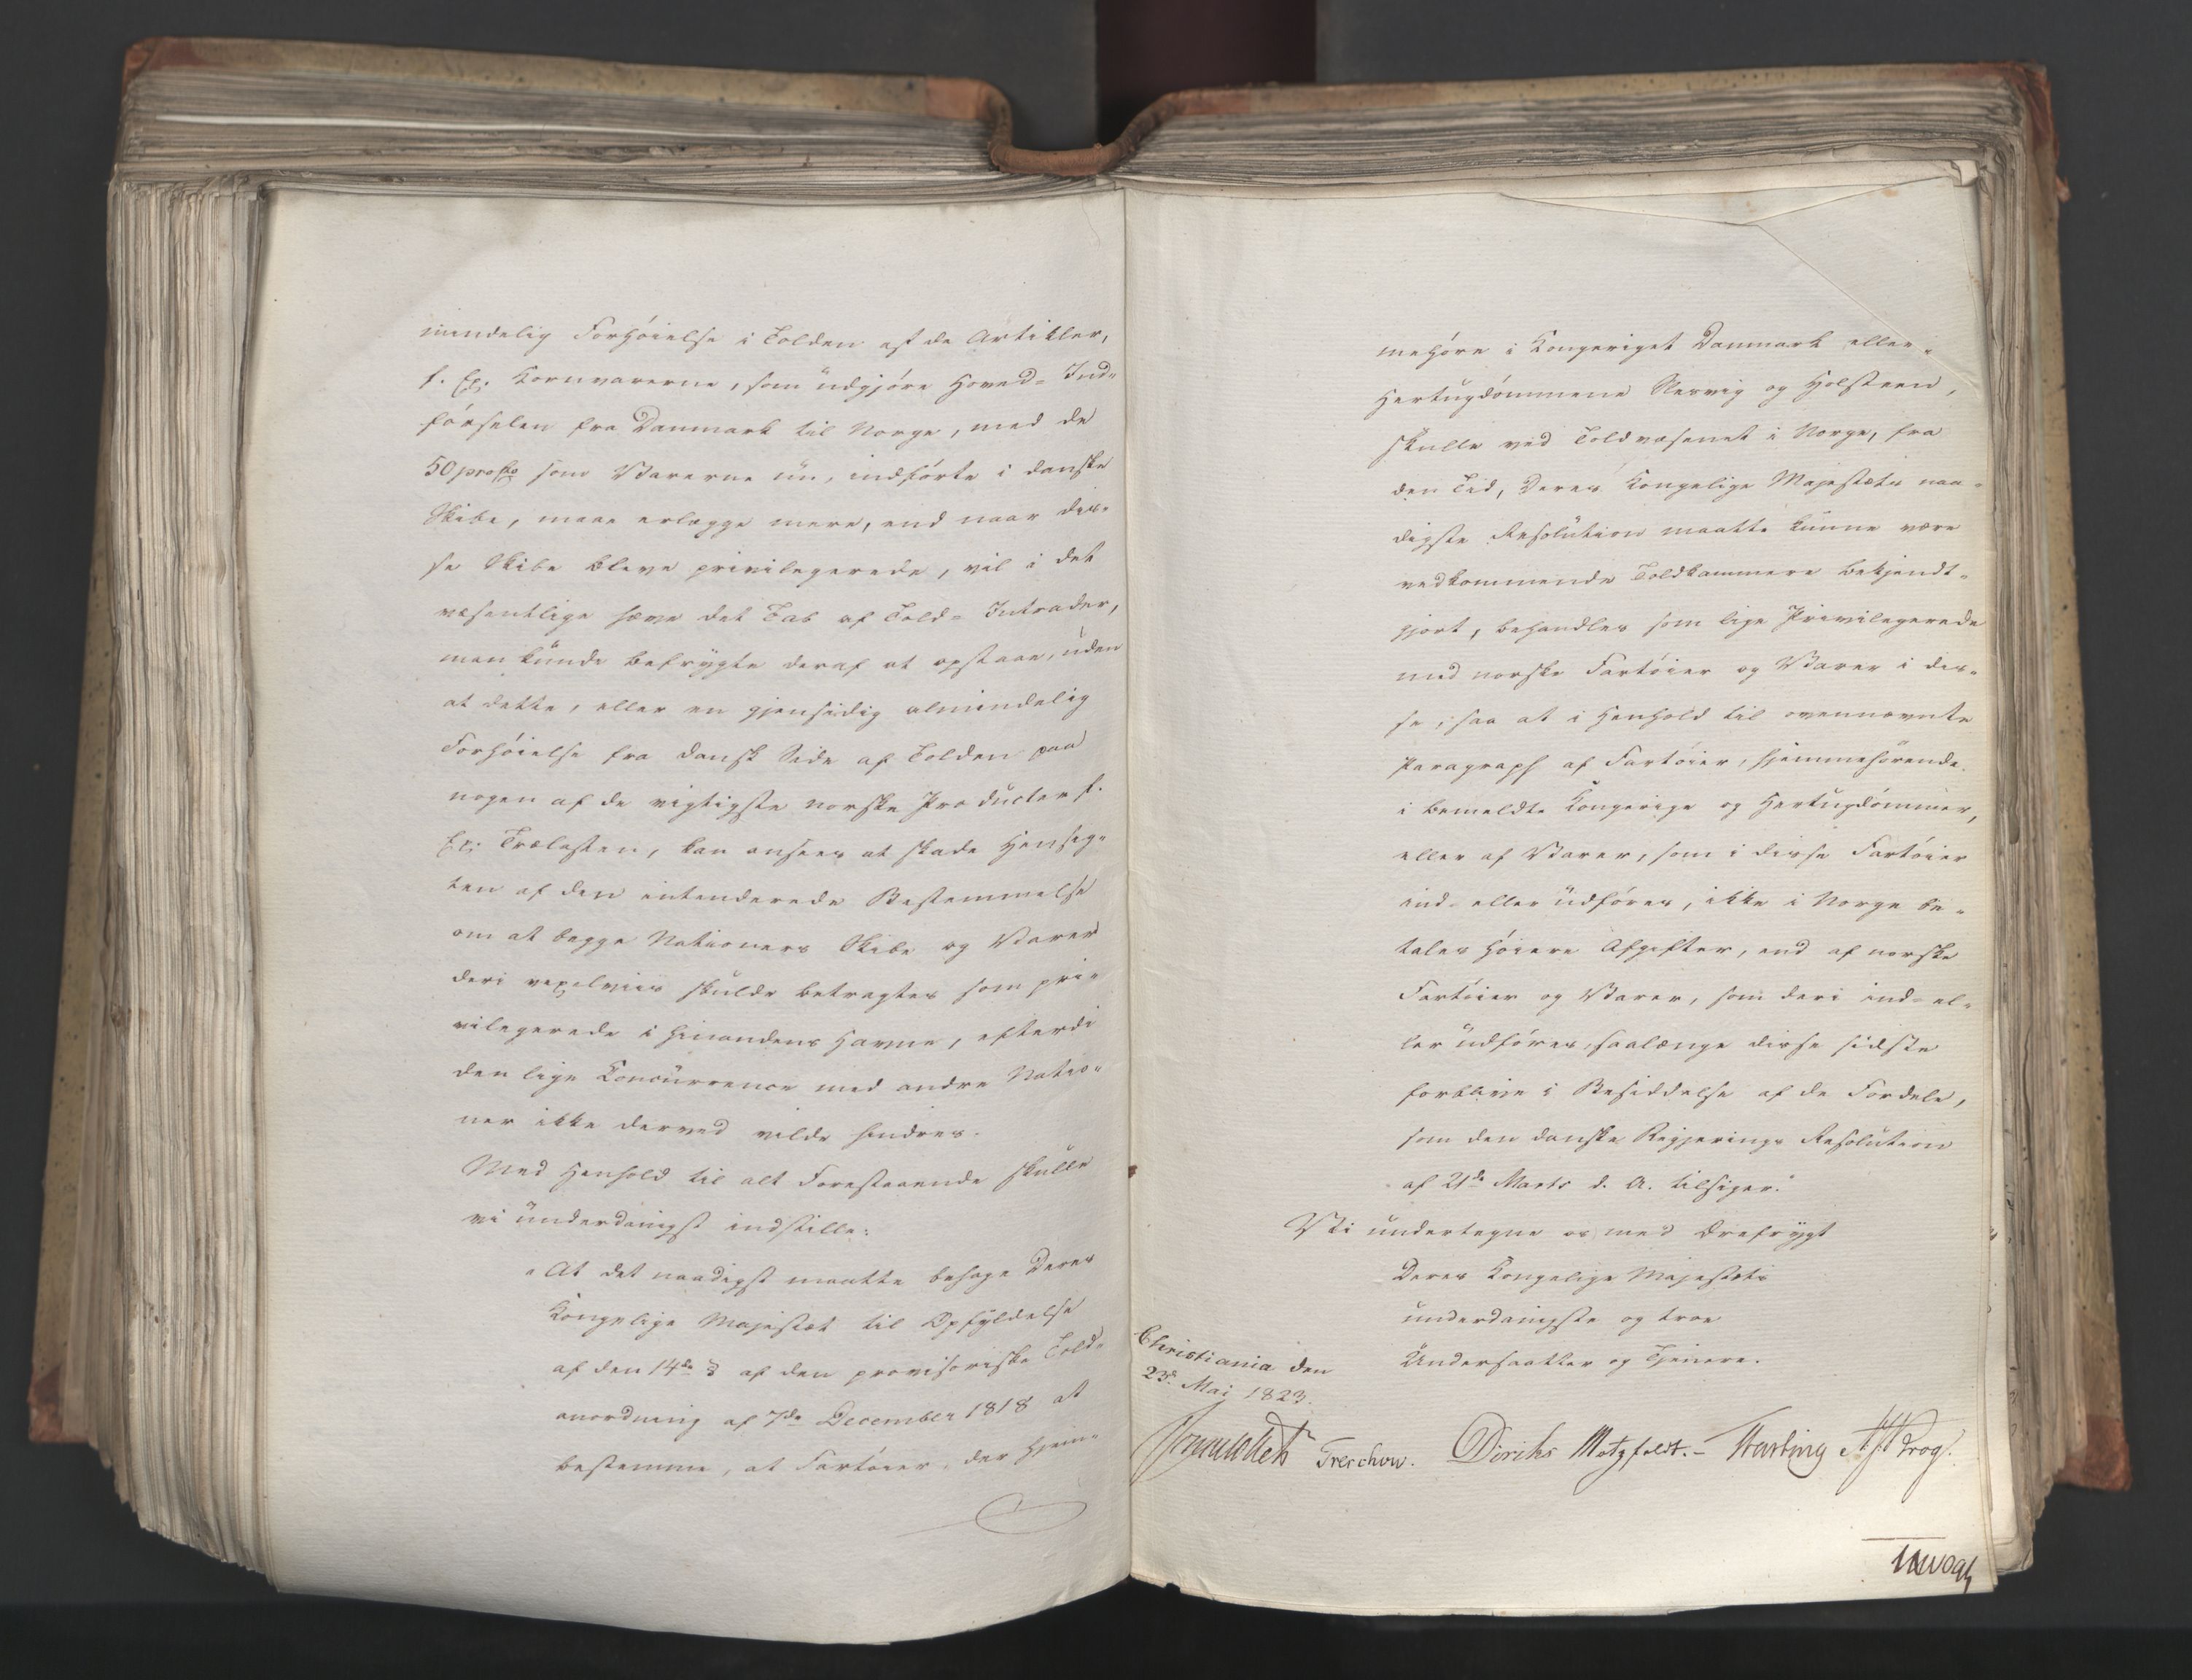 mindelig Forhöielse i Tolden af de Artikler,
f. Ex. Kornvarerne, som udgjöre Hoved- Ind-
förselen fra Danmark til Norge, med de
50 pro Cto som Varerne nu, indförte i danske
Skibe, maae erlægge mere, end naar dis-
se Skibe bleve privilegerede, vil i det
væsentlige hæve det Tab af Told- Intrader,
man kunde befrygte deraf at opstaae, uden
at dette, eller en gjensidig almindelig
Forhöielse fra dansk Side af Tolden paa
nogen af de vigtigste norske Producter f.
Ex. Trælasten, kan ansees at skade Hensig-
ten af den intenderede Bestemmelse
om at begge Nationers Skibe og Varer
deri vexelviis skulde betragtes som pri-
vilegerede i hinandens Havne, efterdi
den lige Concurrence med andre Natio-
ner ikke derved vilde hindres.
Med Henhold til alt Forestaaende skulle
vi underdanigst indstille:
"At det naadigst maatte behage Deres
Kongelige Majestæt til Opfyldelse
af den 14de § af den provisoriske Told-
anordning af 7de December 1818 at
bestemme, at Fartöier, der hjem-
mehöre i Kongeriget Danmark eller
Hertugdömmene Slesvig og Holsteen,
skulle ved Toldvæsenet i Norge, fra
den Tid, Deres Kongelige Majestæts naa-
digste Resolution maatte kunne være
vedkommende Toldkammere bekjendt-
gjort, behandles som lige Privilegerede
med norske Fartöier og Varer i dis-
se, saa at i Henhold til ovennævnte
Paragraph af Fartöier, hjemmehörende
i bemeldte Kongerige og Hertugdömmer,
eller af Varer, som i disse Fartöier
ind- eller udföres, ikke i Norge be-
tales höiere Afgifter, end af norske
Fartöier og Varer, som deri ind- el-
ler udföres, saalænge disse sidste
forblive i Besiddelse af de Fordele,
som den danske Regjerings Resolution
af 21de Marts d. A. tilsiger."
Vi undertegne os med Ærefrygt
Deres Kongelige Majestæts
underdanigste og troe
Undersaatter og Tjenere.
Christiania den
23d Mai 1823.
Treschow. Diriks Motzfeldt. - Krog.